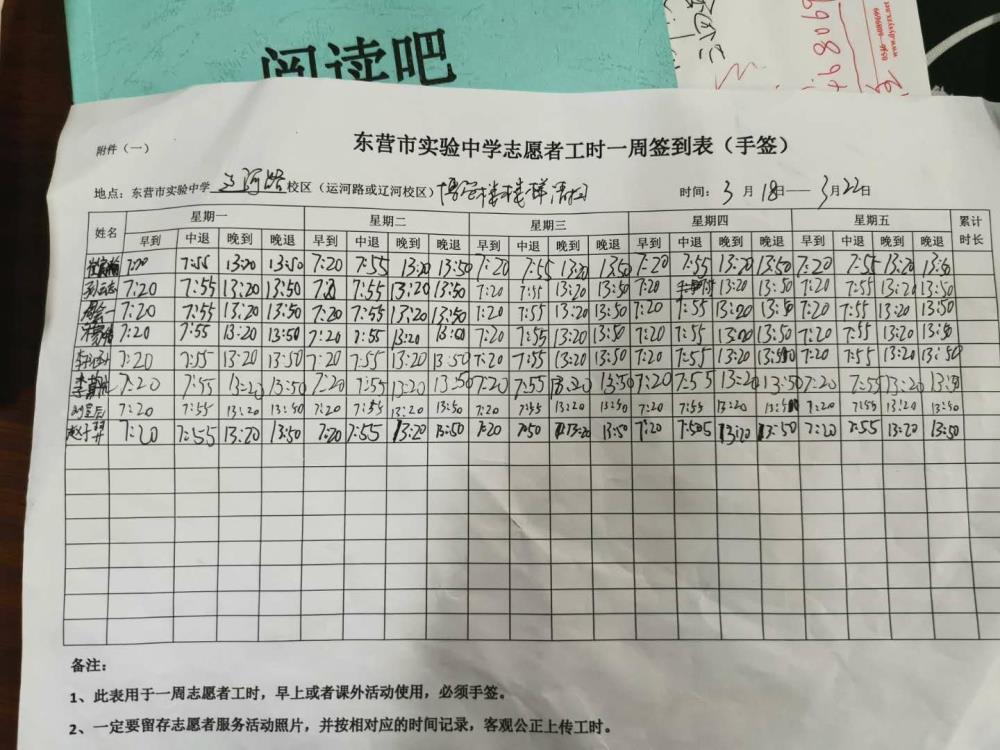 阅读吧
附件（一）
东营市实验中学志愿者工时一周签到表（手签）
地点：东营市实验中学 辽河路 校区（运河路或辽河校区） 楼楼梯清扫 时间：3 月 18日——3月22日
姓名 星期一 星期二 星期三 星期四 星期五 累计时长
早到 中退 晚到 晚退 早到 中退 晚到 晚退 早到 中退 晚到 晚退 早到 中退 晚到 晚退 早到 中退 晚到 晚退
7:20 7:55 13:20 13:50 7:20 7:55 13:20 13:50 7:20 7:55 13:20 13:50 7:20 7:55 13:20 13:50 7:20 7:55 13:20 13:50
7:20 7:55 13:20 13:50 7:20 7:55 13:20 13:50 7:20 7:55 13:20 13:50 7:20 13:20 13:50 7:20 7:55 13:20 13:50
7:20 7:55 13:20 13:50 7:20 7:55 13:20 13:50 7:20 7:55 13:20 13:50 7:20 7:55 13:20 13:50 7:20 7:55 13:20 13:50
7:20 7:55 13:20 13:50 7:20 7:55 13:20 7:20 7:55 13:20 13:50 7:20 7:55 13:50 7:20 7:55 13:20 13:50
7:20 7:55 13:20 13:50 7:20 7:55 13:20 13:50 7:20 7:55 13:20 13:50 7:20 7:55 13:20 7:20 7:55 13:20 13:50
7:20 7:55 13:20 13:50 7:20 7:55 13:20 13:50 7:20 7:55 13:20 13:50 7:20 7:55 13:20 13:50 7:20 7:55 13:20 13:50
7:20 7:55 13:20 13:50 7:20 7:55 13:20 13:50 7:20 7:55 13:20 13:50 7:20 7:55 13:20 7:20 7:55 13:20 13:50
赵子羿 7:20 7:55 13:20 13:50 7:20 7:55 13:20 13:50 7:20 7:50 13:20 13:50 7:20 7:505 13:20 13:50 7:20 7:55 13:20 13:50
备注：
1、此表用于一周志愿者工时，早上或者课外活动使用，必须手签。
2、一定要留存志愿者服务活动照片，并按相对应的时间记录，客观公正上传工时。